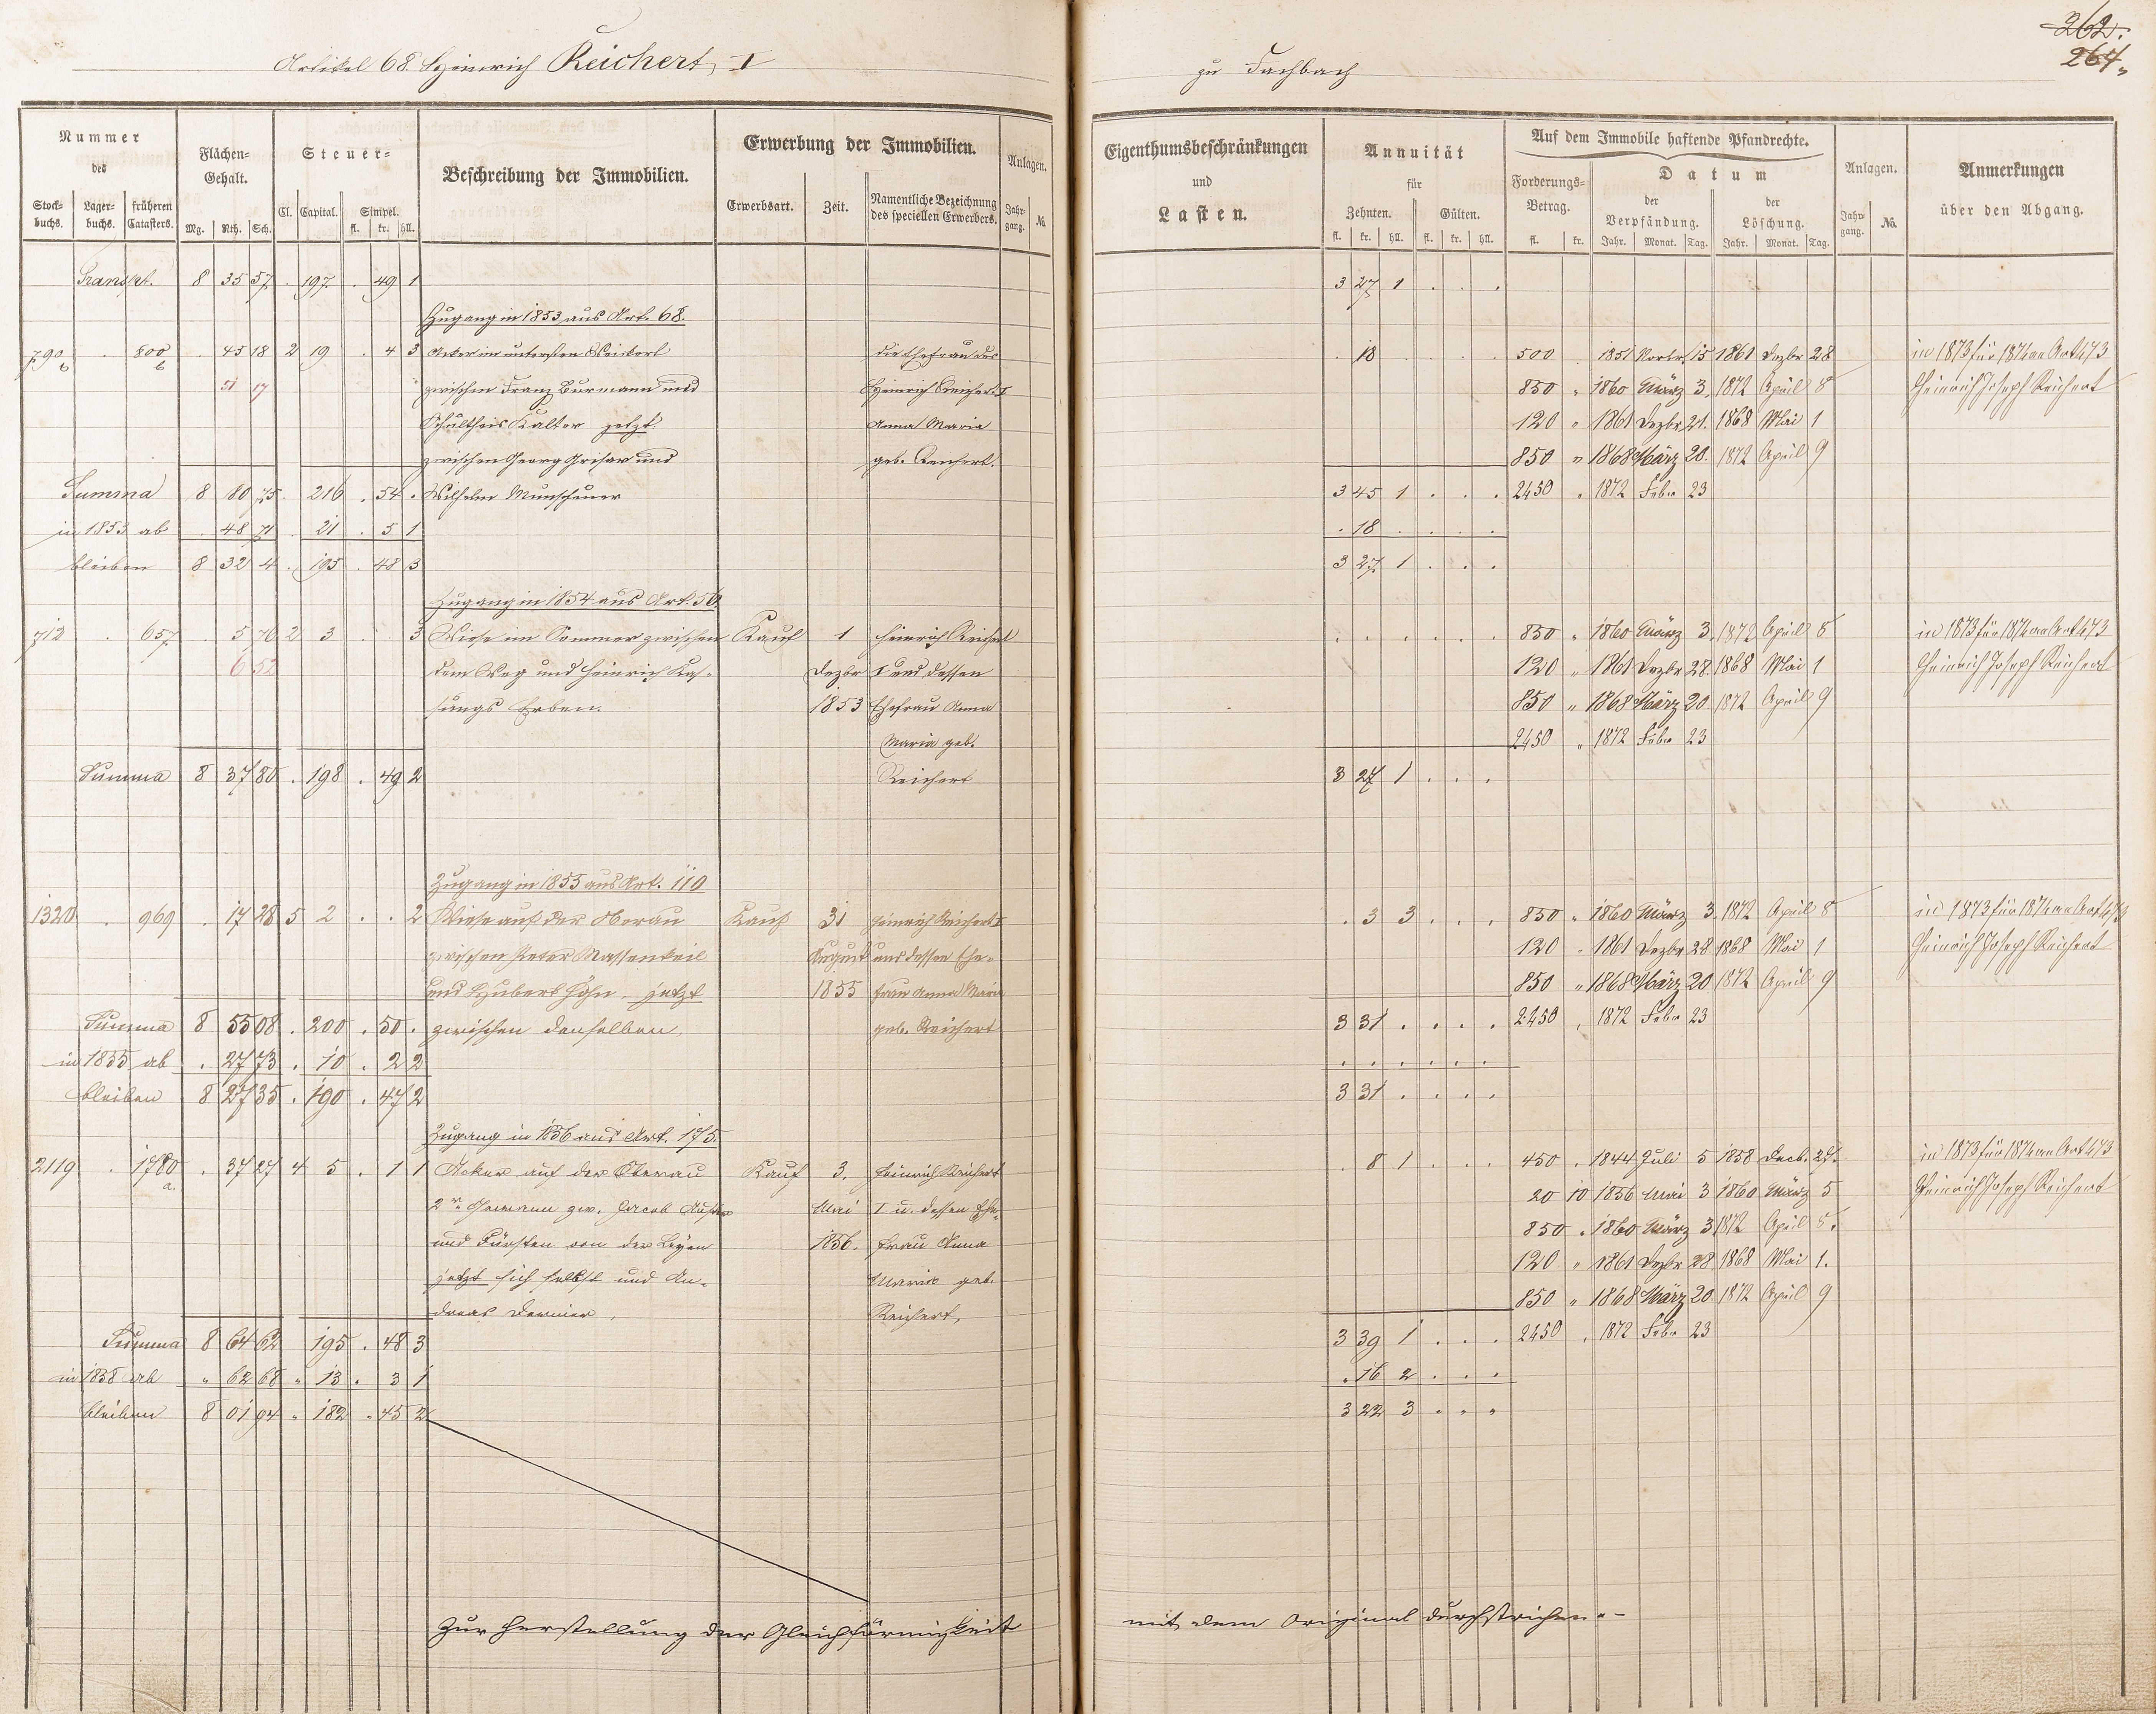 262.
264.
Artikel 68. Heinrich Reichert, I zu Fachbach
Nummer des
Stock- buchs. Lager- buchs. früheren Catasters.
Flächen- Gehalt.
Mg. Rth. Sch.
Steuer-
Cl. Capital. Simpel. fl. kr. hll.
Beschreibung der Immobilien.
Erwerbung der Immobilien.
Erwerbsart. Zeit. Namentliche Bezeichnung des speciellen Erwerbers.
Anlagen. Jahr- gang. No.
Eigenthumsbeschränkungen und Lasten.
Annuität für
Zehnten. Gülten.
fl. kr. hll. fl. kr. hll.
Auf dem Immobile haftende Pfandrechte.
Forderungs- Betrag. fl. kr.
Datum
der Verpfändung. Jahr. Monat. Tag.
der Löschung. Jahr. Monat. Tag.
Anlagen. Jahr- gang. No.
Anmerkungen über den Abgang.
Transpt. 8 35 57 . 197 . 49 1 3 27 1 . . .
Zugang in 1853 aus Art. 68.
790 b . 800 b . 45 18 2 19 . 4 3 Acker im untersten die Ehefrau des . 18 . . . . 500 1851 Novbr. 15 1861 Dezbr 28 in 1873 für 1874 an Art 473
51 17 zwischen Franz Burmann und Heinrich Reichert I 850 " 1860 März 3. 1872 April 8 Heinrich Joseph Reichert
Schultheis Kalter jetzt Anna Maria 120 " 1861 Dezbr 21. 1868 Mai 1
zwischen Georg Grisar und geb. Reichert. 850 " 1868 März 20. 1872 April 9
Summa 8 80 75 . 216 . 54 . Wilhelm Munschauer 3 45 1 . . . 2450 " 1872 Febr 23
in 1853 ab . 48 71 . 21 . 5 1 . 18 . . . .
bleiben 8 32 4 . 195 . 48 3 3 27 1 . . .
Zugang in 1854 aus Art. 50.
712 . 657 . 5 76 2 3 . . 3 Wiese im Sommer zwischen Kauf 1 Heinrich Reichert . . . . . . 850 " 1860 März 3. 1872 April 8 in 1873 für 1874 an Art 473
6 52 dem Weg und Heinrich Dezbr I und dessen 120 " 1861 Dezbr 28. 1868 Mai 1 Heinrich Joseph Reichert
Erben. 1853 Ehefrau Anna 850 " 1868 März 20. 1872 April 9
Maria geb. 2450 " 1872 Febr 23
Summa 8 37 80 . 198 . 49 2 Reichert 3 27 1 . . .
Zugang in 1855 aus Art. 110
1320 . 969 . 17 28 5 2 . . 2 Wiese auf der Horau Kauf 31 Heinrich Reichert I . 3 3 . . . 850 " 1860 März 3. 1872 April 8 in 1873 für 1874 an Art 473
zwischen Peter Massenkeil August und dessen Ehe- 120 " 1861 Dezbr 28 1868 Mai 1 Heinrich Joseph Reichert
und Hubert Höhn. jetzt 1855 frau Anna Maria 850 " 1868 März 20. 1872 April 9
Summa 8 55 08 . 200 . 50 . zwischen denselben. geb. Reichert 3 31 . . . . 2450 " 1872 Febr 23
in 1855 ab . 27 73 . 10 . 2 2 . . . . . .
bleiben 8 27 35 . 190 . 47 2 3 31 . . . .
Zugang in 1856 aus Art. 175.
2119 . 1780 a. . 37 27 4 5 . 1 1 Acker auf der Oberau Kauf 3. Heinrich Reichert . 8 1 . . . 450 . 1844 Juli 5 1858 Decb. 29. in 1873 für 1874 an Art 473
2r Gewann zw. Jacob Mai I u. dessen Ehe- 20 10 1856 Mai 3 1860 März 5 Heinrich Joseph Reichert
und Fürsten von der Leyen 1856. frau Anna 850 " 1860 März 3 1872 April 8.
jetzt sich selbst und An- Maria geb. 120 " 1861 Dezbr 28 1868 Mai 1.
dreas Reichert. 850 " 1868 März 20. 1872 April 9
Summa 8 64 62 195 . 48 3 3 39 1 . . . 2450 . 1872 Febr 23
in 1858 ab " 62 68 " 13 . 3 1 . 16 2 . . .
bleiben 8 01 94 " 182 " 45 2 3 22 3 " " "
Zur Herstellung der Gleichförmigkeit mit dem Original durchstrichen. –